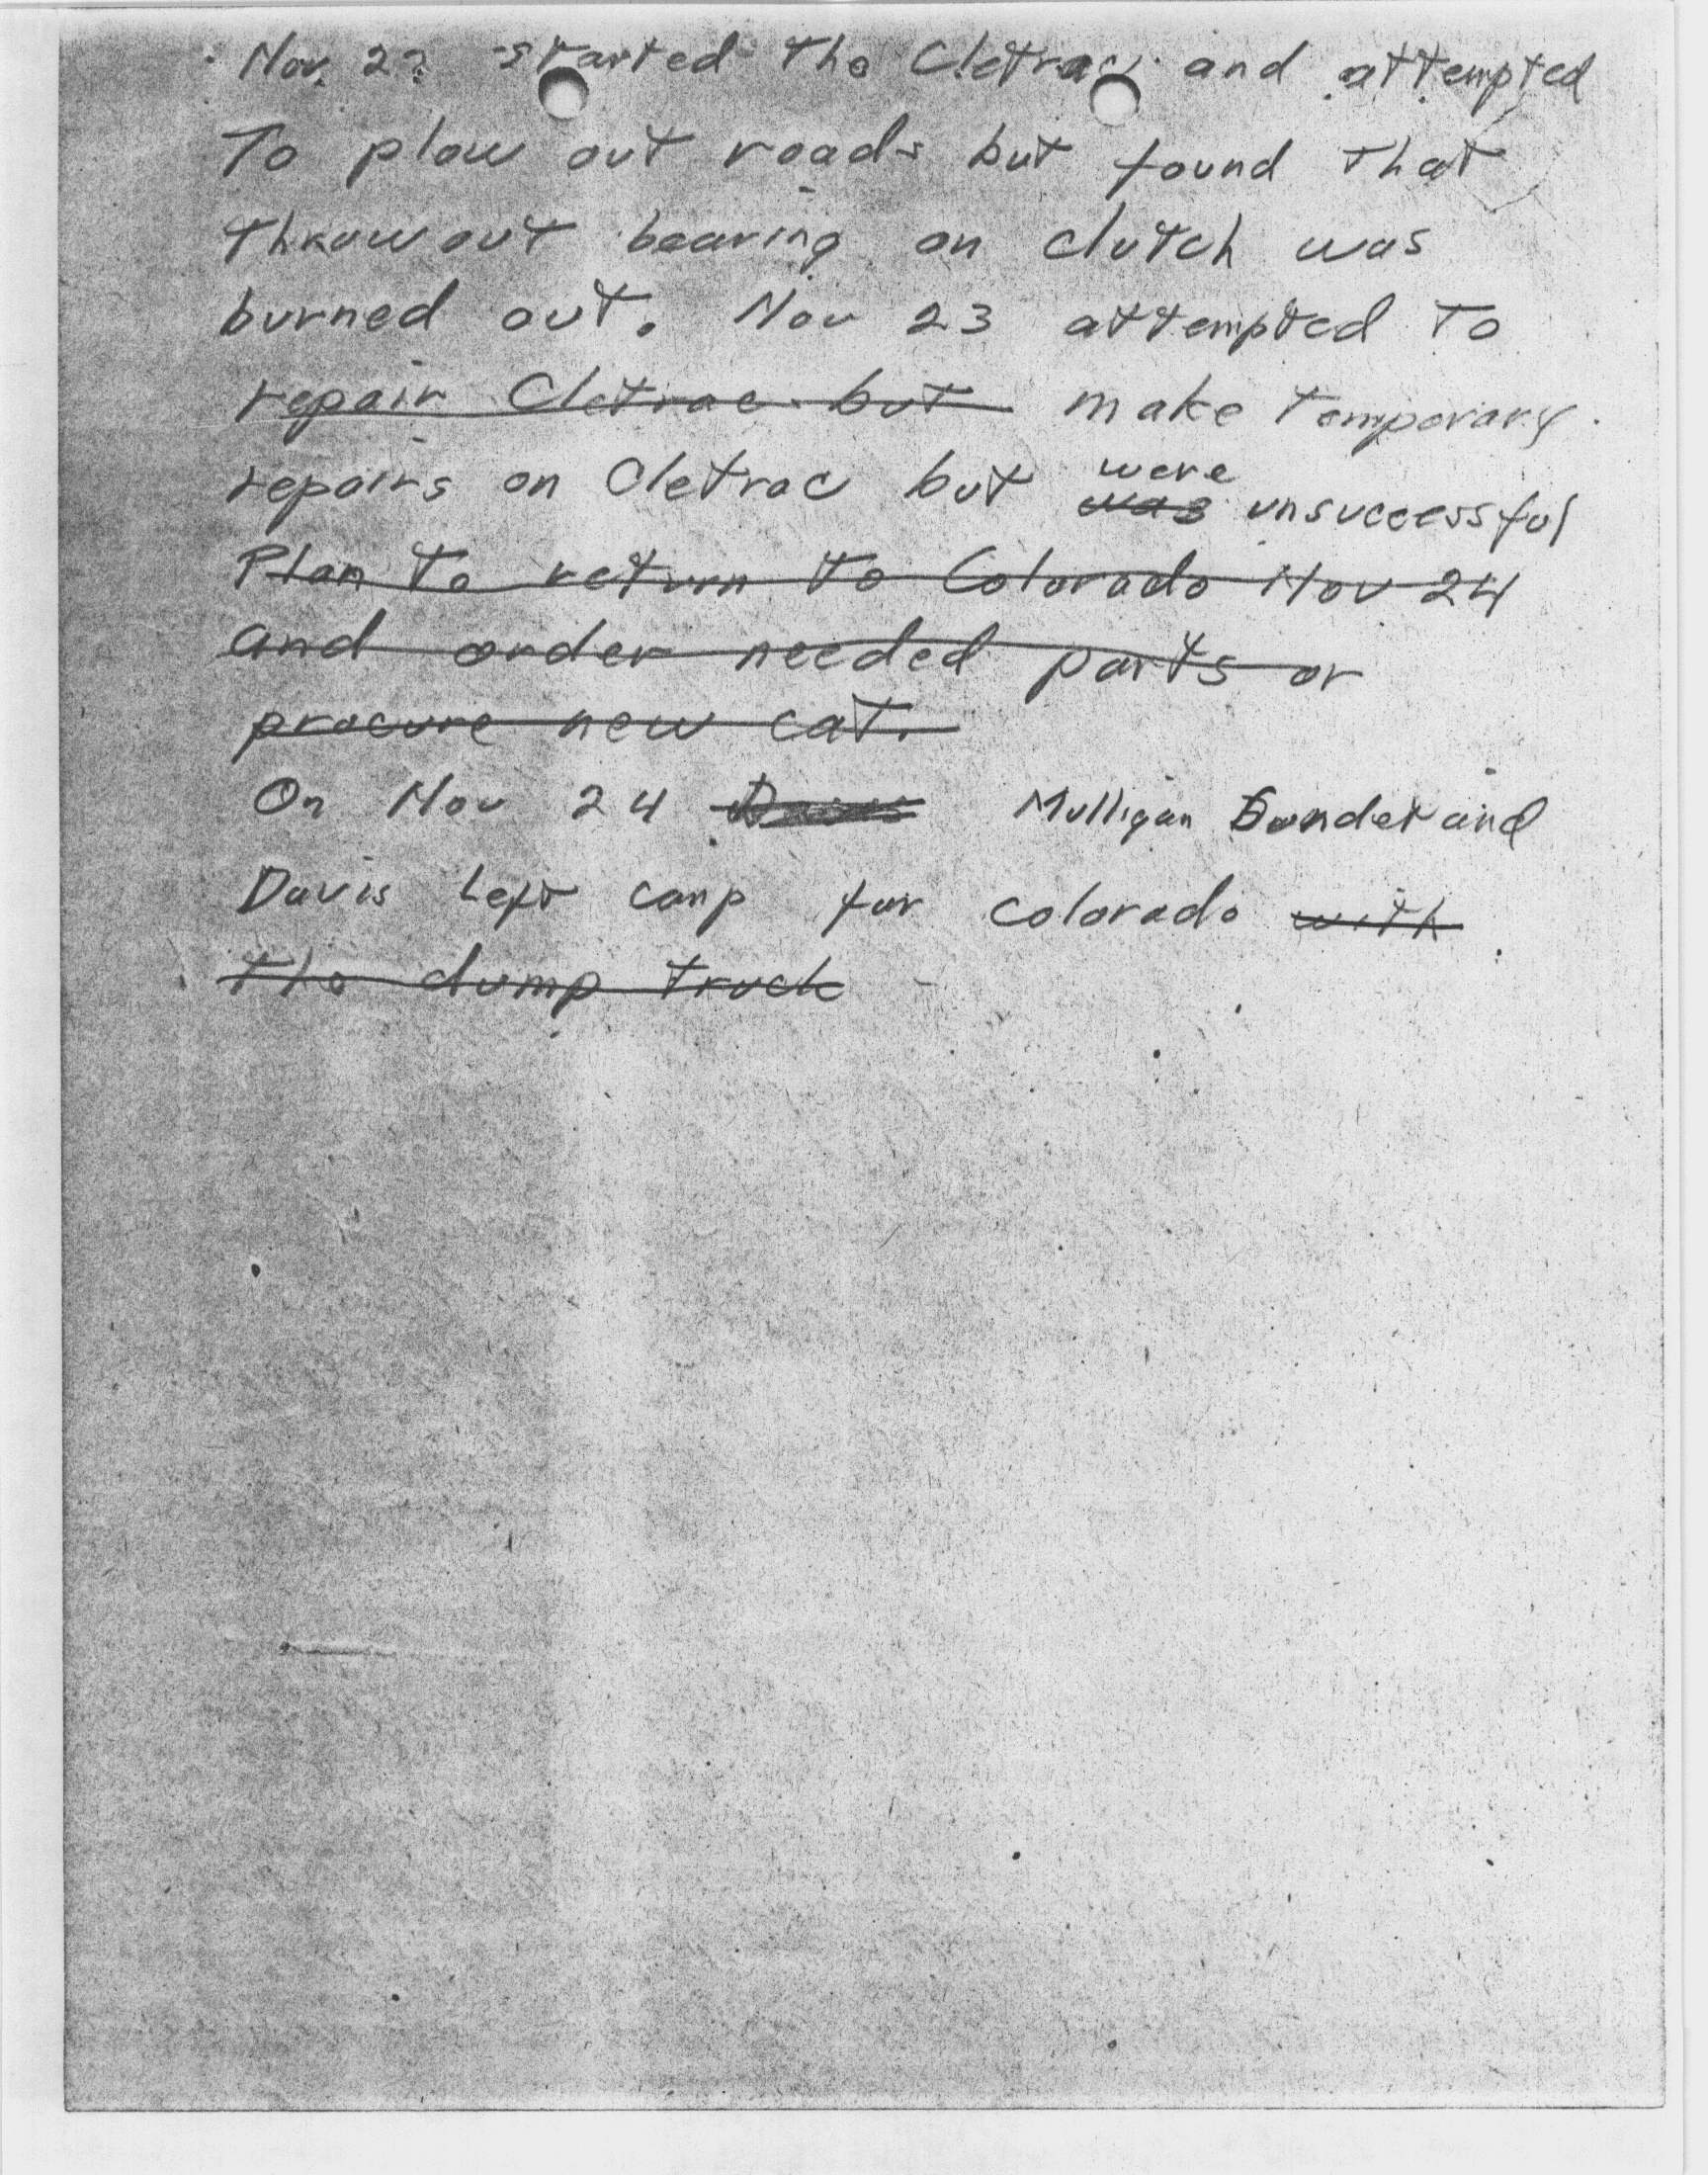 Nov. 22 started the Cletrac and attempted
To plow out roads but found that
Throwout bearing on clutch was
burned out. Nov 23 attempted to
repair Cletrac but make temporary
repairs on Cletrac but were
was unsuccessful
Plan to return to Colorado Nov 24
and order needed parts or
procure new cat.
On Nov 24 Davis Mulligan and
Davis Left camp for Colorado with
the dump truck